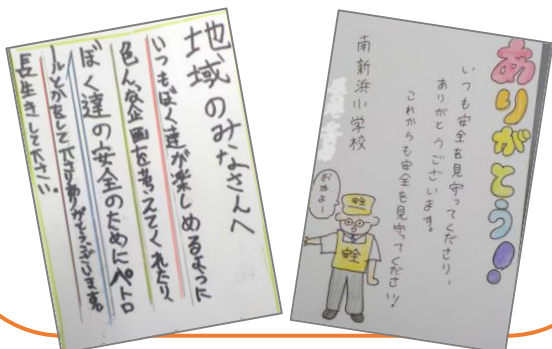 地域のみなさんへ
いつもぼく達が楽しめるように
色んな企画を考えてくれたり、
ぼく達の安全のためにパトロ
ルなどをして下さりありがとうございます。
長生きして下さい。
ありがとう!
いつも安全を見守ってくださり、
ありがとうございます。
これからも安全を見守ってください!
南新浜小学校
おはよー
安全
安全